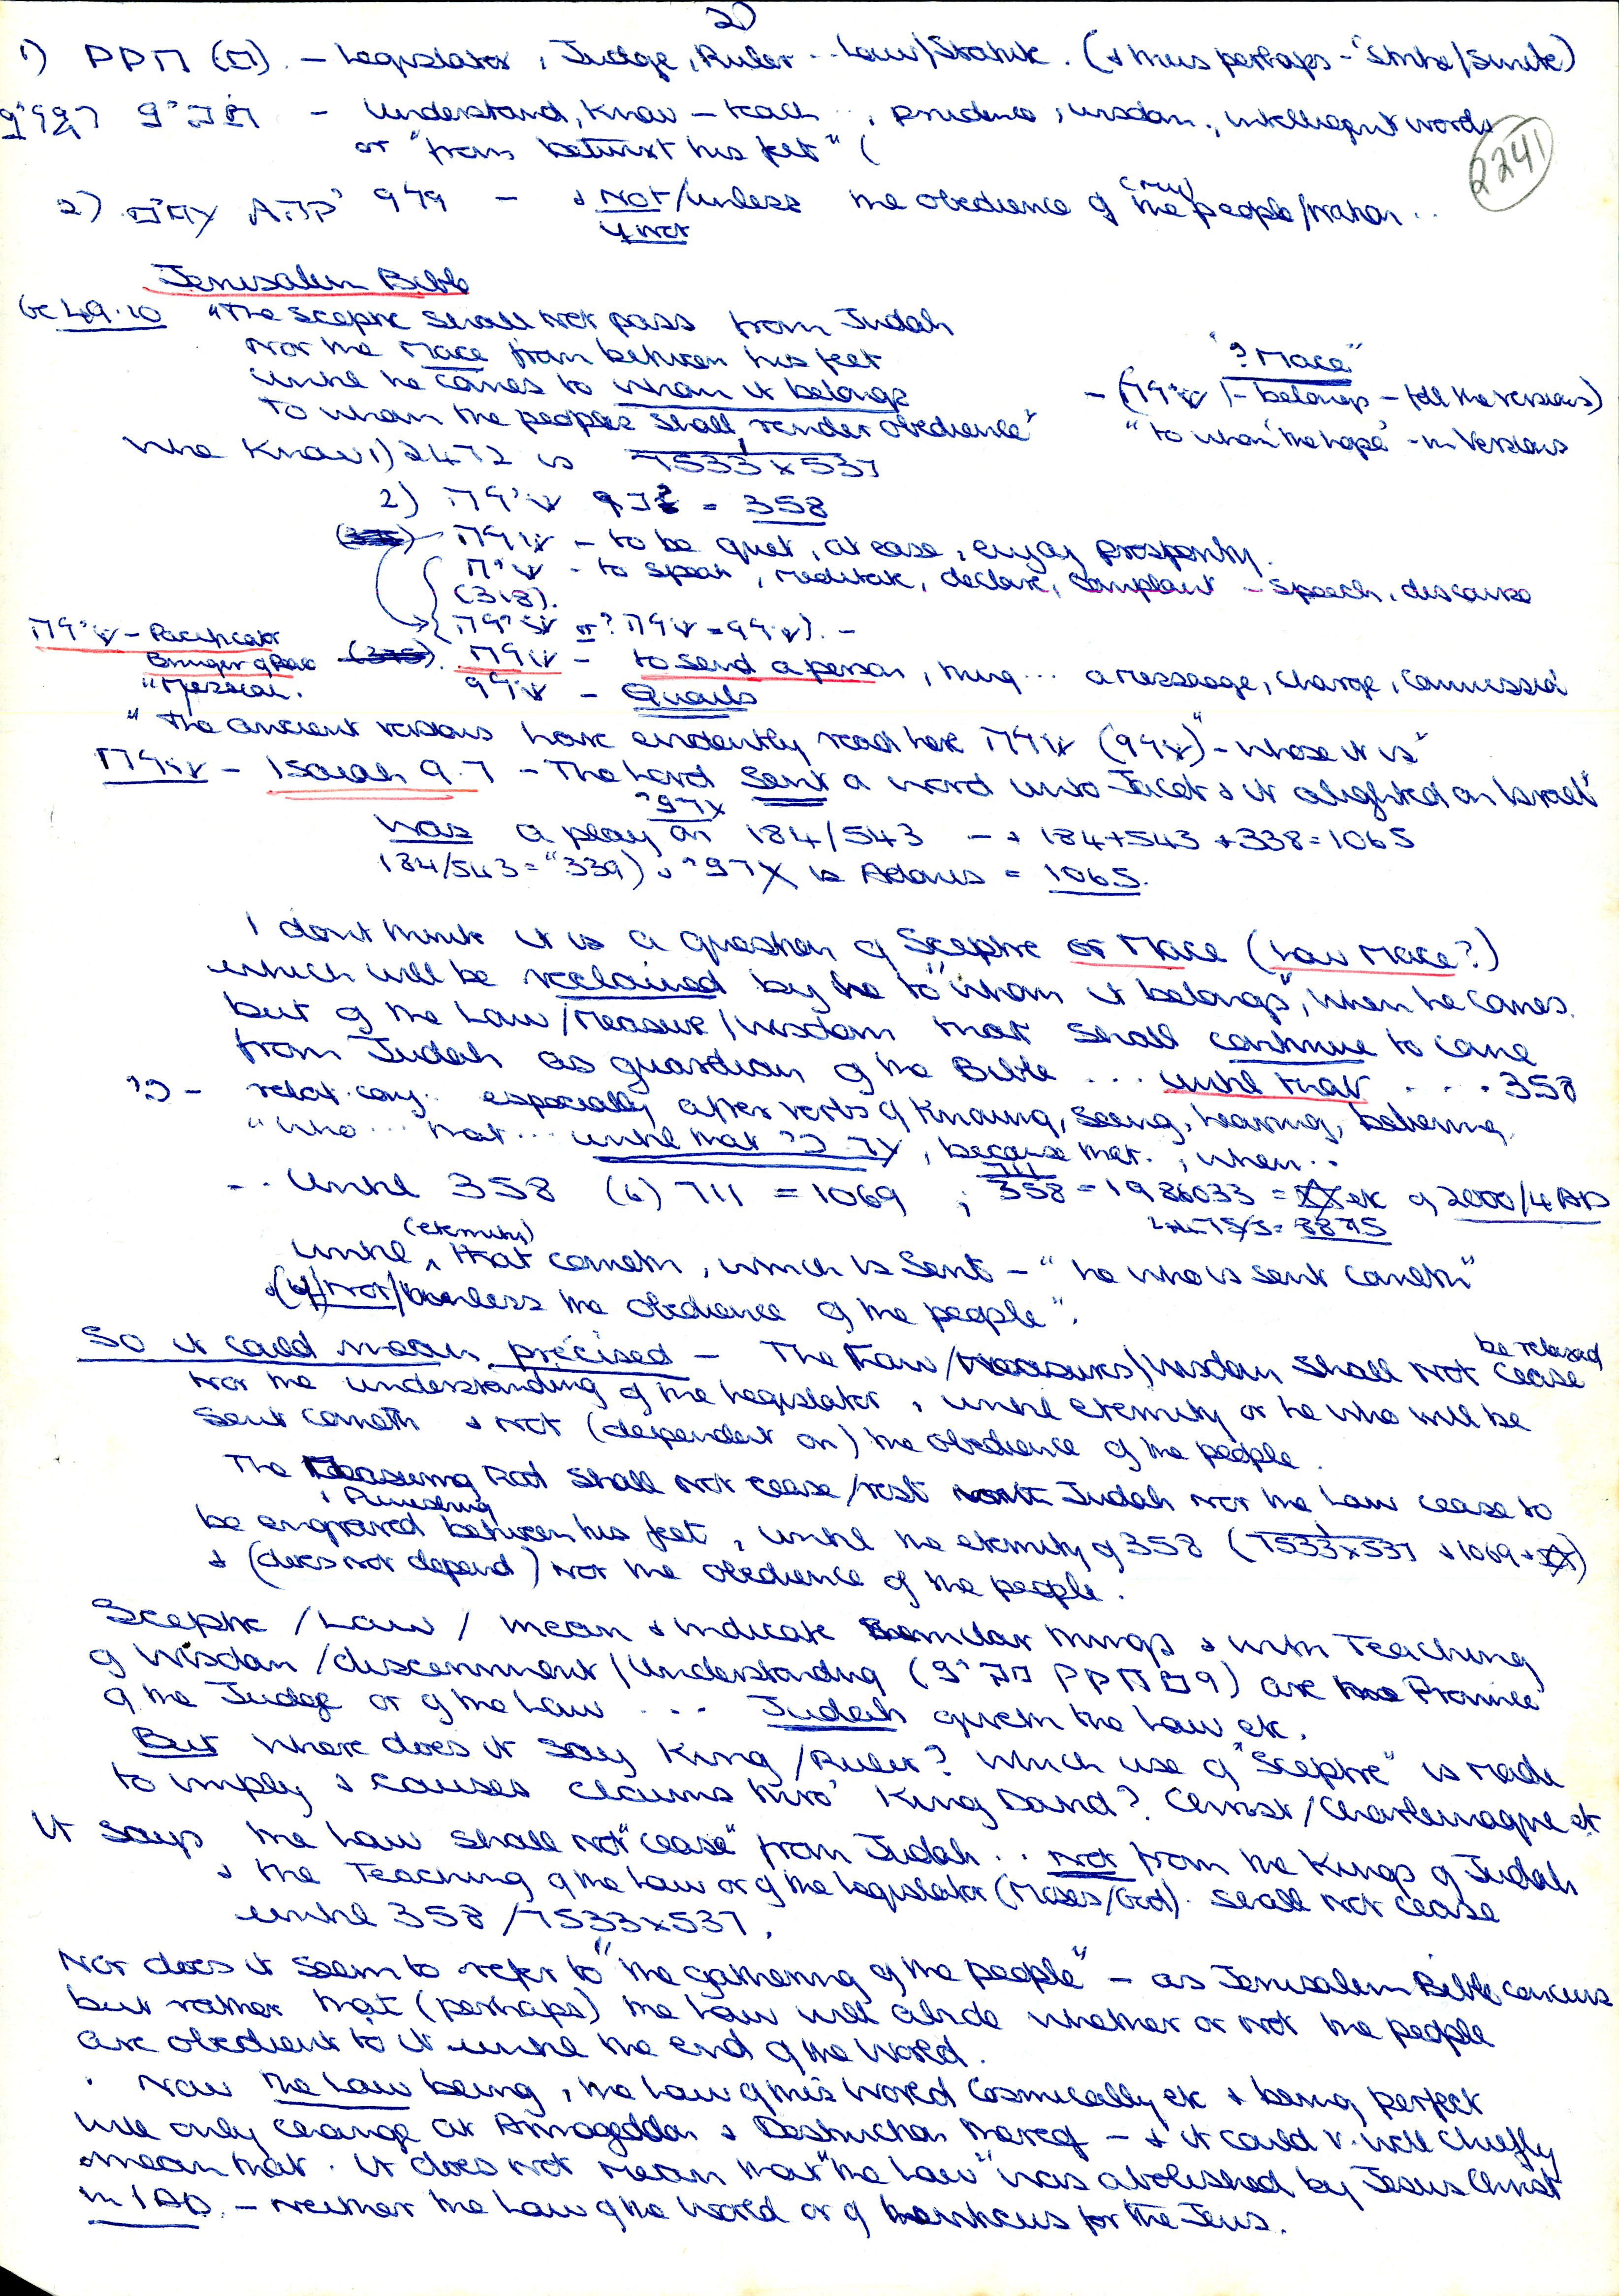 2)
1) קקח (מ). – Legislator, Judge, Ruler .. Law/Statute. (& thus perhaps – "Strike/Smite)
– Understand, Know – teach .., prudence, wisdom., intelligent words
or "from betwixt his feet" (
2241
2) – & Not/unless the obedience of (my) the people/nation ..
if not
Jerusalem Bible
Ge 49.10 "The sceptre shall not pass from Judah
Nor the Mace from between his feet
Until he comes to whom it belongs
To whom the peoples shall render obedience"
"? Mace"
– belongs – foll the versions)
"to whom the hope" – in versions
We Know 1) 2472 is 7533 x 537
2) = 358
– to be quiet, at ease, enjoy prosperity.
– to speak, meditate, declare, complaint – speech, discourse
(318).
– Pacificator
Bringer of Peace
"Messiah.
– to send a person, thing ... a message, charge, commission
– Quails
"The ancient versions have evidently read here – whose it is"
– Isaiah 9.7 – The Lord Sent a word unto Jacob & it alighted on Israel"
was a play on 184/543 – & 184+543+338=1065
184/543 = "339) & is Adonis = 1065.
I dont think it is a question of Sceptre or Mace (Law Mace?)
which will be reclaimed by he to "whom it belongs", when he comes.
but of the Law/Measure/Wisdom that shall continue to come
from Judah as guardian of the Bible ... until that .... 358
כי – relat. conj. especially after verbs of Knowing, Seeing, hearing, believing.
"who ... that ... until that עד כי, because that., when ..
.. Until 358 (6) 711 = 1069 ; 358 = 1986033 = etc of 2000/4 AD
Until (eternity) that cometh, which is Sent – "he who is sent cometh"
&(if) Not/unless the obedience of the people".
So it could mean, précised – The Law/Measures/Wisdom shall not cease be released
Nor the understanding of the Legislator, until eternity or he who will be
sent cometh & not (dependent on) the obedience of the people.
The Measuring & Punishing Rod shall not cease/rest Judah nor the Law cease to
be engraved between his feet, until the eternity of 358 (7533x537 & 1069 +
& (does not depend) nor the obedience of the people.
Sceptre/Law/ mean & indicate similar things & with Teaching
of Wisdom/discernment/Understanding are Province
of the Judge or of the Law ... Judah giveth the Law etc.
But where does it say King/Ruler? Which use of "Sceptre" is made
to imply & causes claims thro' King David? Christ/Charlemagne et
It says the Law shall not "cease" from Judah .. Not from the Kings of Judah
& the Teaching of the Law or of the Legislator (Moses/God). shall not cease
until 358/7533x537.
Nor does it seem to refer to "the gathering of the people" – as Jerusalem Bible concurs
but rather that (perhaps) the Law will abide whether or not the people
are obedient to it until the end of the World.
. Now the Law being, the Law of this World Cosmically etc & being perfect
will only change at Armageddon & Destruction thereof – & it could v. well chiefly
mean that. It does not mean that "the Law" was abolished by Jesus Christ
in 1 AD. – neither the Law of the World or of Leviticus for the Jews.